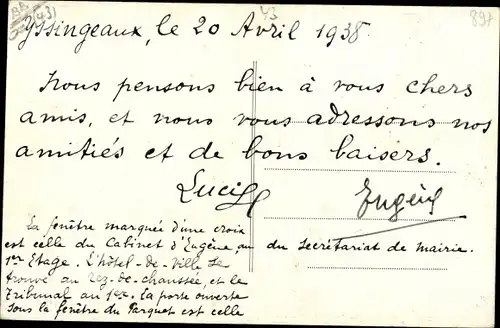 Yssingeaux, le 20 Avril 1938
43
(43)
897
Nous pensons bien à vous chers
amis, et nous vous adressons nos
amitiés et de bons baisers.
Lucie
Eugène
La fenêtre marquée d'une croix
est celle du Cabinet d'Eugène, au
1er Etage. L'hôtel-de-Ville se
trouve au rez-de-chaussée, et le
Tribunal au 1er. La porte ouverte
sous la fenêtre du Parquet est celle
du Secrétariat de Mairie.